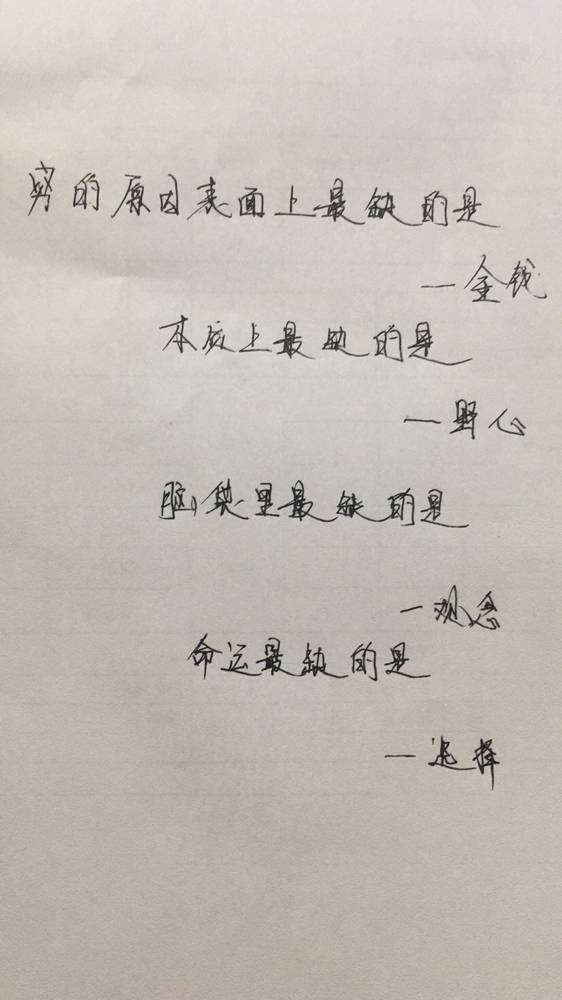 穷的原因表面上最缺的是
一金钱
本质上最缺的是
一野心
脑袋里最缺的是
一观念
命运最缺的是
一选择